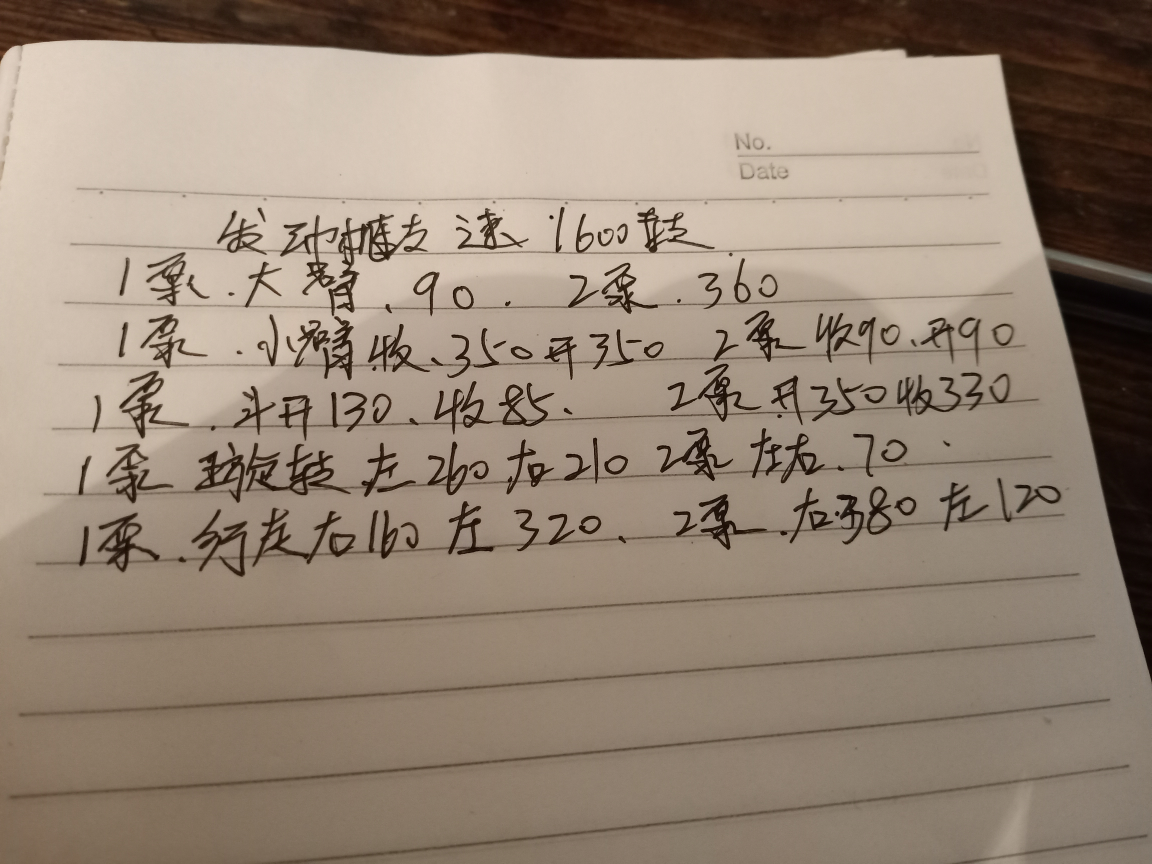 No.
Date
发动机转速1600转
1泵.大臂、90. 2泵.360
1泵.小臂收、350开350 2泵收90、开90
1泵.斗开130、收85、 2泵开350收330
1泵旋转左260右210 2泵左右.70
1泵.行走右160左320、 2泵.右380左120